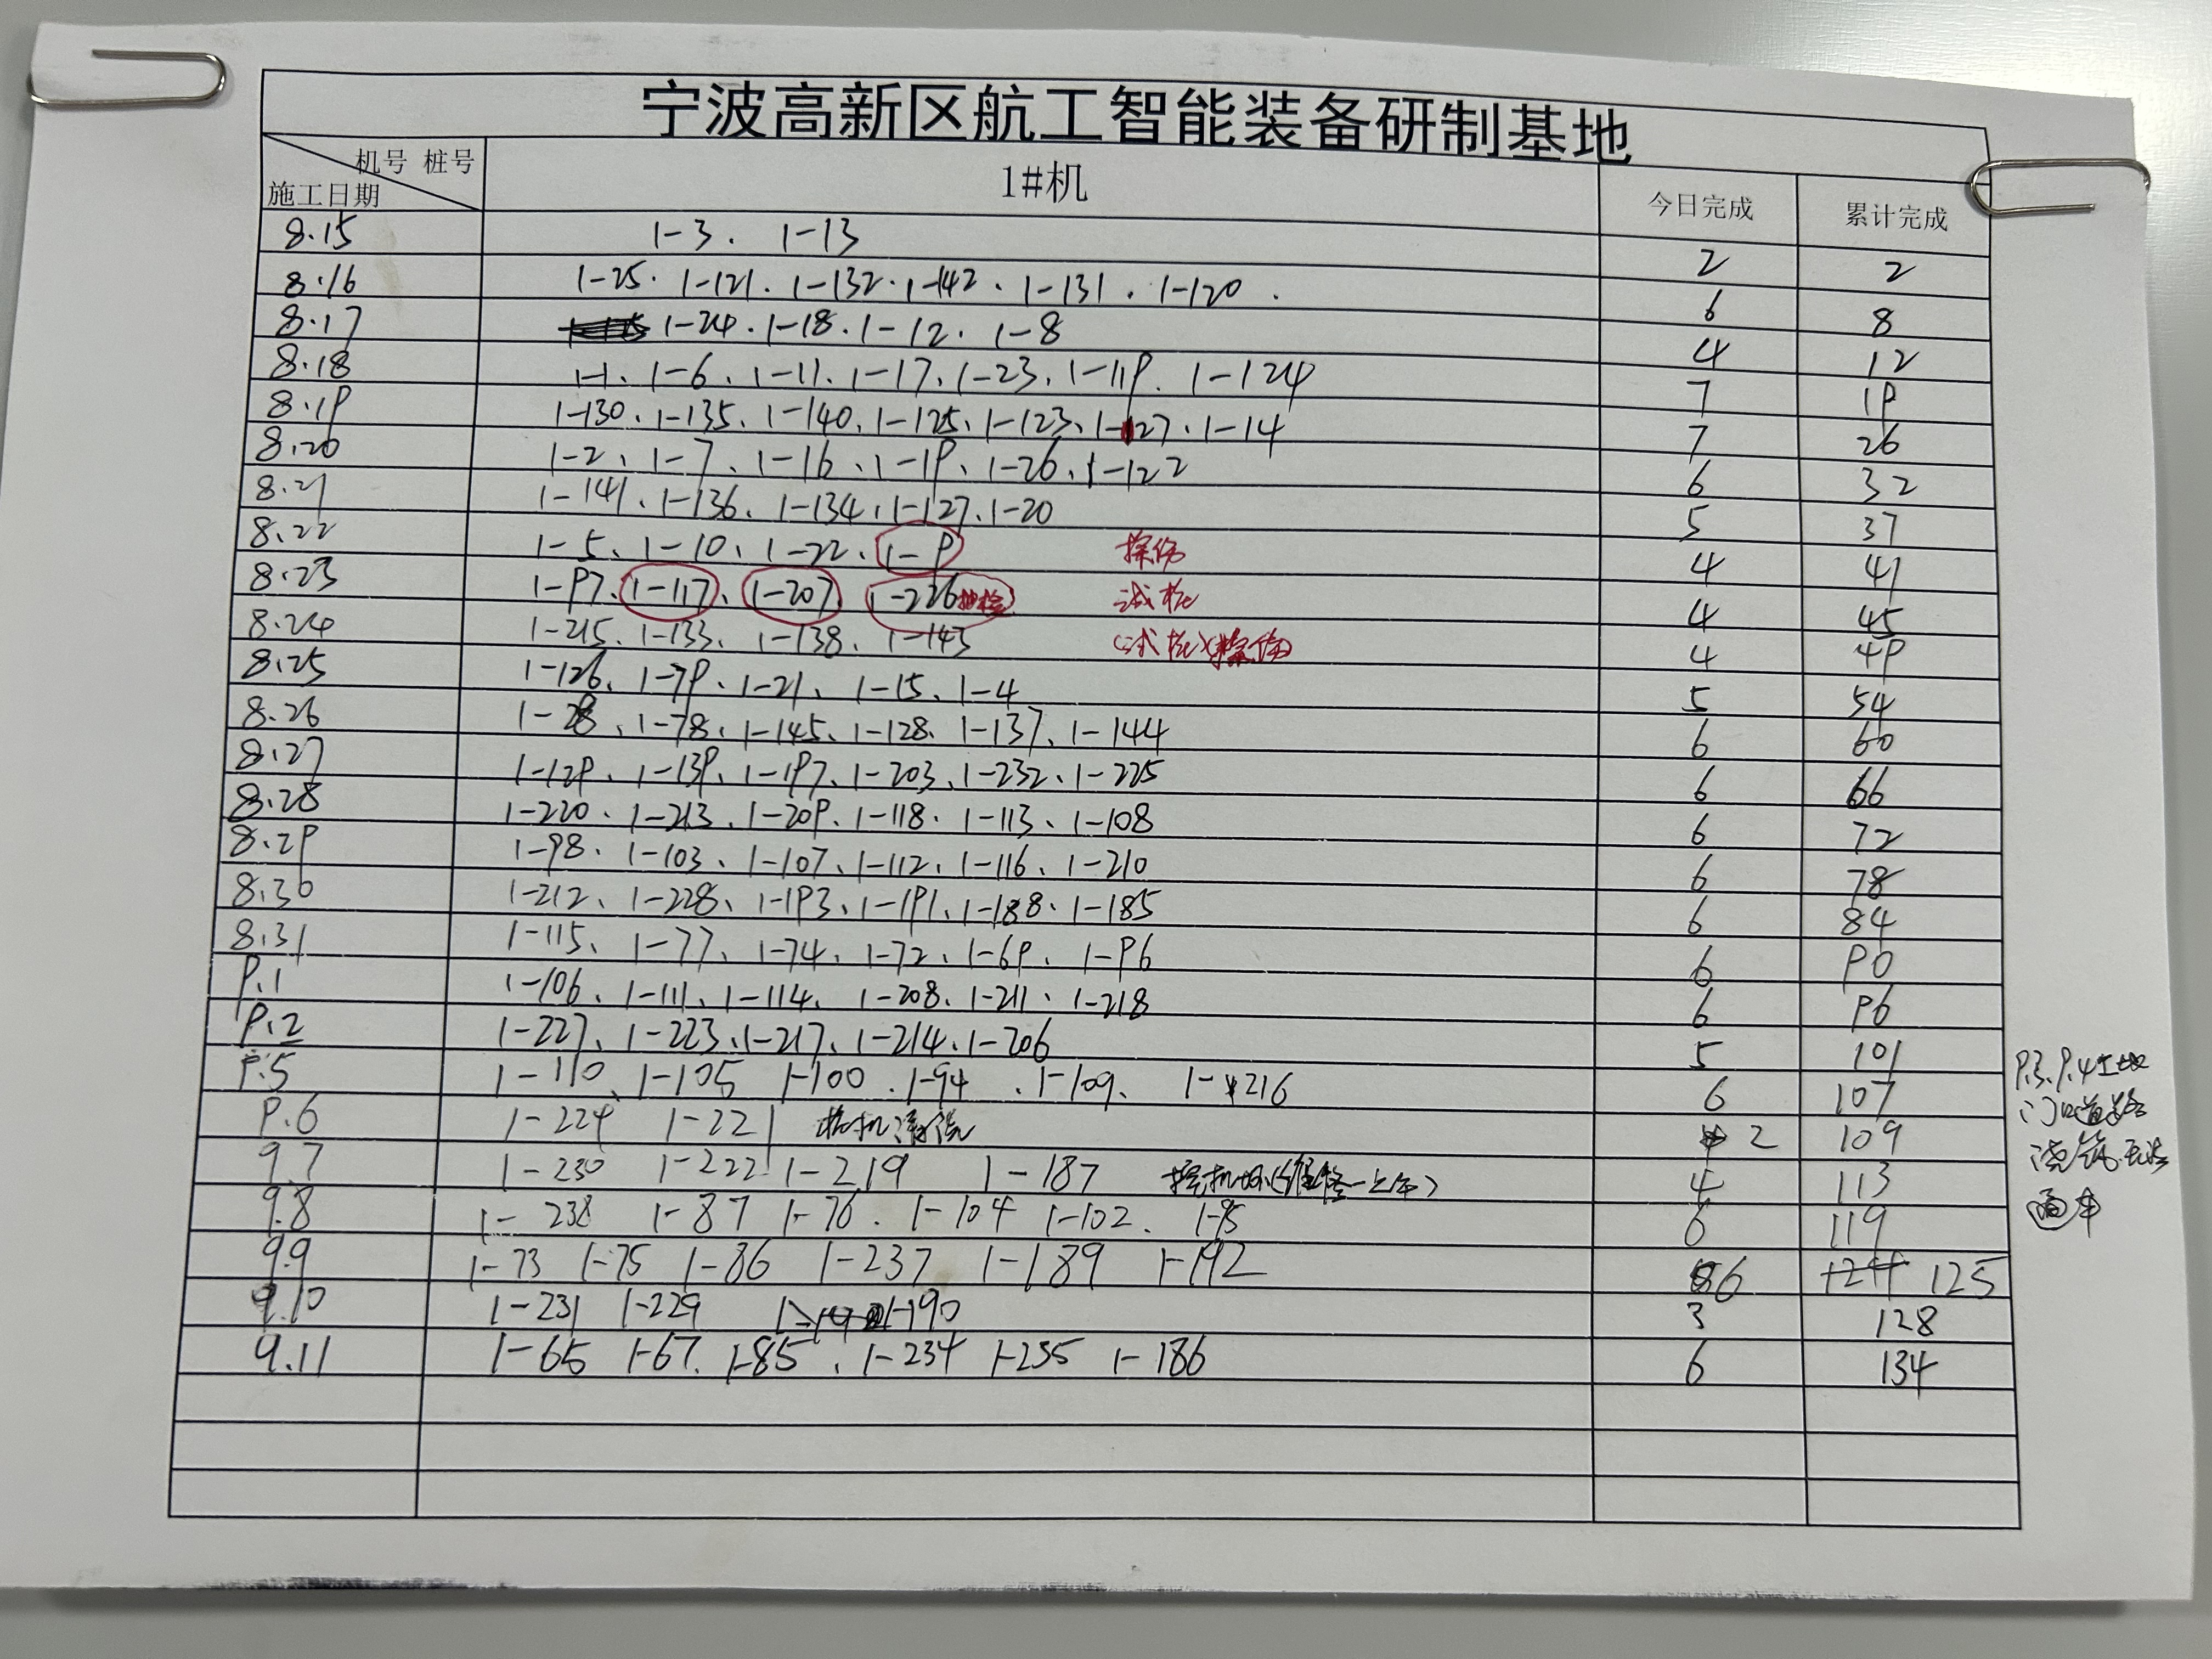 宁波高新区航工智能装备研制基地
机号 桩号 施工日期 1#机 今日完成 累计完成
8.15 1-3. 1-13 2 2
8.16 1-25. 1-121. 1-132. 1-142. 1-131. 1-120. 6 8
8.17 1-24. 1-18. 1-12. 1-8 4 12
8.18 1-1、1-6、1-11、1-17、1-23、1-119. 1-124 7 19
8.19 1-130、1-135、1-140、1-125、1-123、1-27、1-14 7 26
8.20 1-2、1-7、1-16、1-19、1-26、1-122 6 32
8.21 1-141、1-136、1-134、1-127、1-20 5 37
8.22 1-5、1-10、1-22、1-9 探伤 4 41
8.23 1-97、1-117、1-207 1-226 抽检 试桩 4 45
8.24 1-215、1-133、1-138、1-143 (试桩) 4 49
8.25 1-126、1-79、1-21、1-15、1-4 5 54
8.26 1-28、1-78、1-145、1-128、1-137、1-144 6 60
8.27 1-129、1-139、1-197、1-203、1-232、1-225 6 66
8.28 1-220、1-213、1-209、1-118、1-113、1-108 6 72
8.29 1-98、1-103、1-107、1-112、1-116、1-210 6 78
8.30 1-212、1-228、1-193、1-191、1-188、1-185 6 84
8.31 1-115、1-77、1-74、1-72、1-69、1-96 6 90
9.1 1-106、1-111、1-114、1-208、1-211、1-218 6 96
9.2 1-227、1-223、1-217、1-214、1-206 5 101
9.5 1-110、1-105 1-100. 1-94. 1-109、1-216 6 107
9.6 1-224 1-221 桩机清洗 2 109
9.7 1-230 1-222 1-219 1-187 挖机坏(维修一上午) 4 113
9.8 1-238 1-87 1-76. 1-104 1-102. 1-95 6 119
9.9 1-73 1-75 1-86 1-237 1-189 1-192 6 125
9.10 1-231 1-229 1-190 3 128
9.11 1-65 1-67. 1-85. 1-234 1-235 1-186 6 134
9.3、9.4工地
门口道路
浇筑无法
通车